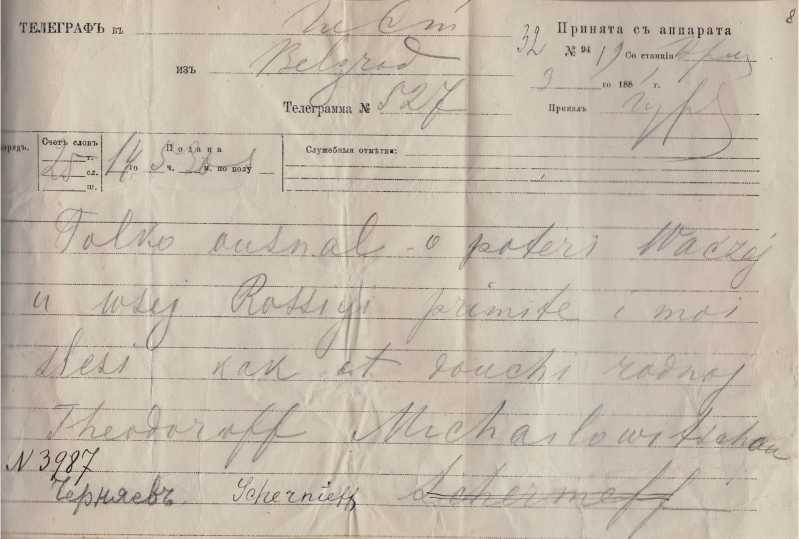 8
ТЕЛЕГРАФЪ въ
Принята съ аппарата
32 № 94 19 Со станціи
изъ Belgrad
2 го 1881 г.
Телеграмма № 527
Принялъ
азрядъ. Счетъ словъ Подана Служебныя отмѣтки:
т.
25 сл. 14 го 5 ч. м. по полу
ш.
Tolko ousnal o poteri Waczej
u wsej Rossiji primite i moi
slesi kak ot douchi rodnoj
Theodoroff Michailowitschau
N 3987
Черняевъ. Schernieff